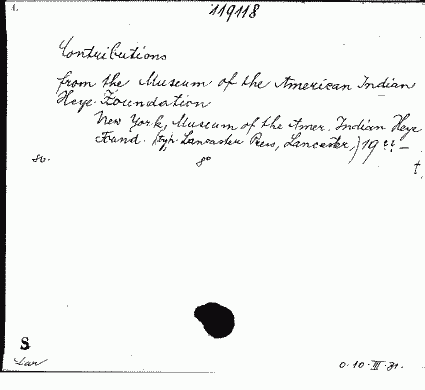 1.
119118
Contributions
from the Museum of the American Indian
Heye Foundation
New York, Museum of the Amer. Indian Heye
Found. (typ. Lancaster Press, Lancaster,) 19??–
8º
†
S
0.10.III.31.